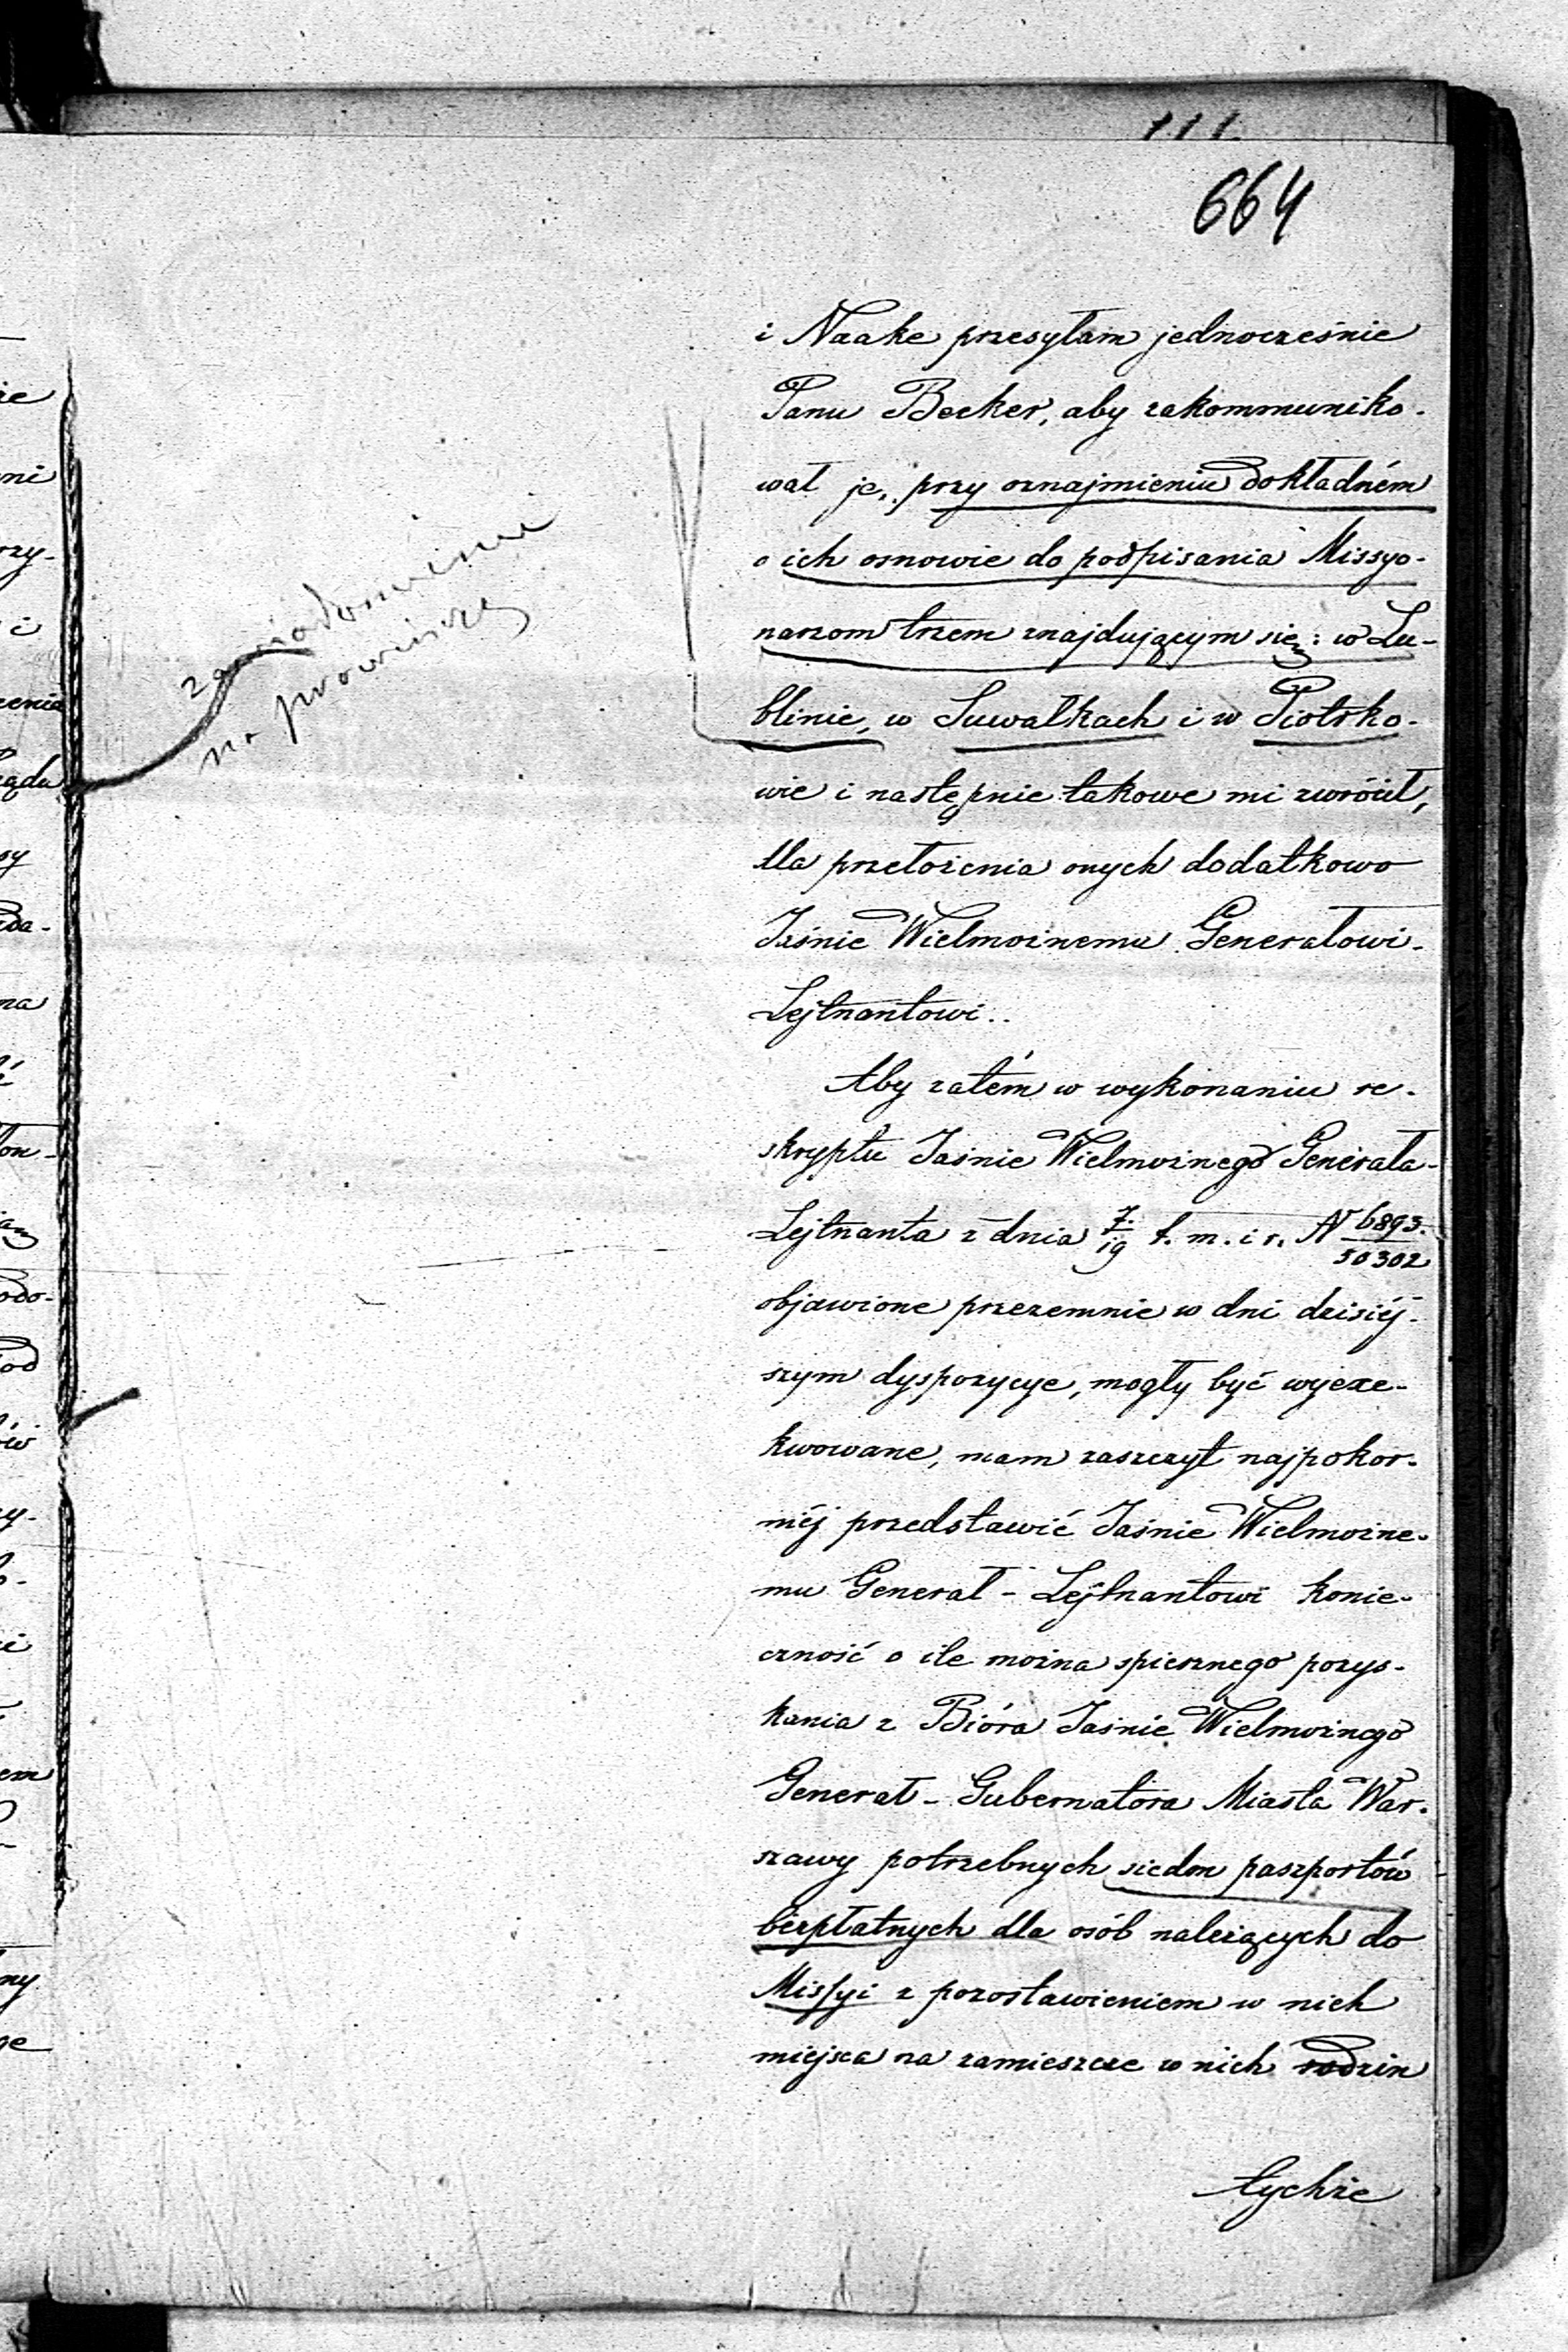 664
i Naake przesyłam jednocześnie
Panu Becker, aby zakommuniko-
wał je, przy oznajmieniu dokładném
o ich osnowie do podpisania Missyo-
narzom trzem znajdującym się: w Lu-
blinie, w Suwałkach i w Piotrko-
wie i następnie takowe mi zwrócił,
dla przełożenia onych dodatkowo
Jaśnie Wielmożnemu Generałowi-
Lejtnantowi..
Aby zatém w wykonaniu re-
skryptu Jaśnie Wielmożnego Generała-
Lejtnanta z dnia 7/19 t. m. i r. N 6893/50302
objawione przezemnie w dni dzisiéj-
szym dyspozycye, mogły być wyexe-
kwowane, mam zaszczyt najpokor-
niéj przedstawić Jaśnie Wielmożne-
mu Generał-Lejtnantowi konie-
czność o ile można spiesznego pozys-
kania z Bióra Jaśnie Wielmożnego
Generał-Gubernatora Miasta War-
szawy potrzebnych siedm paszportów
bezpłatnych dla osób należących do
Missyi z pozostawieniem w nich
miejsca na zamieszcze w nich rodzin
tychże
zawiadomienie
na prowincyę
ie
ni
rzy-
i
zenia
ządu
sy
da-
na
lon-
odo-
od
ów
zy-
b-
ei
em
ny
ge